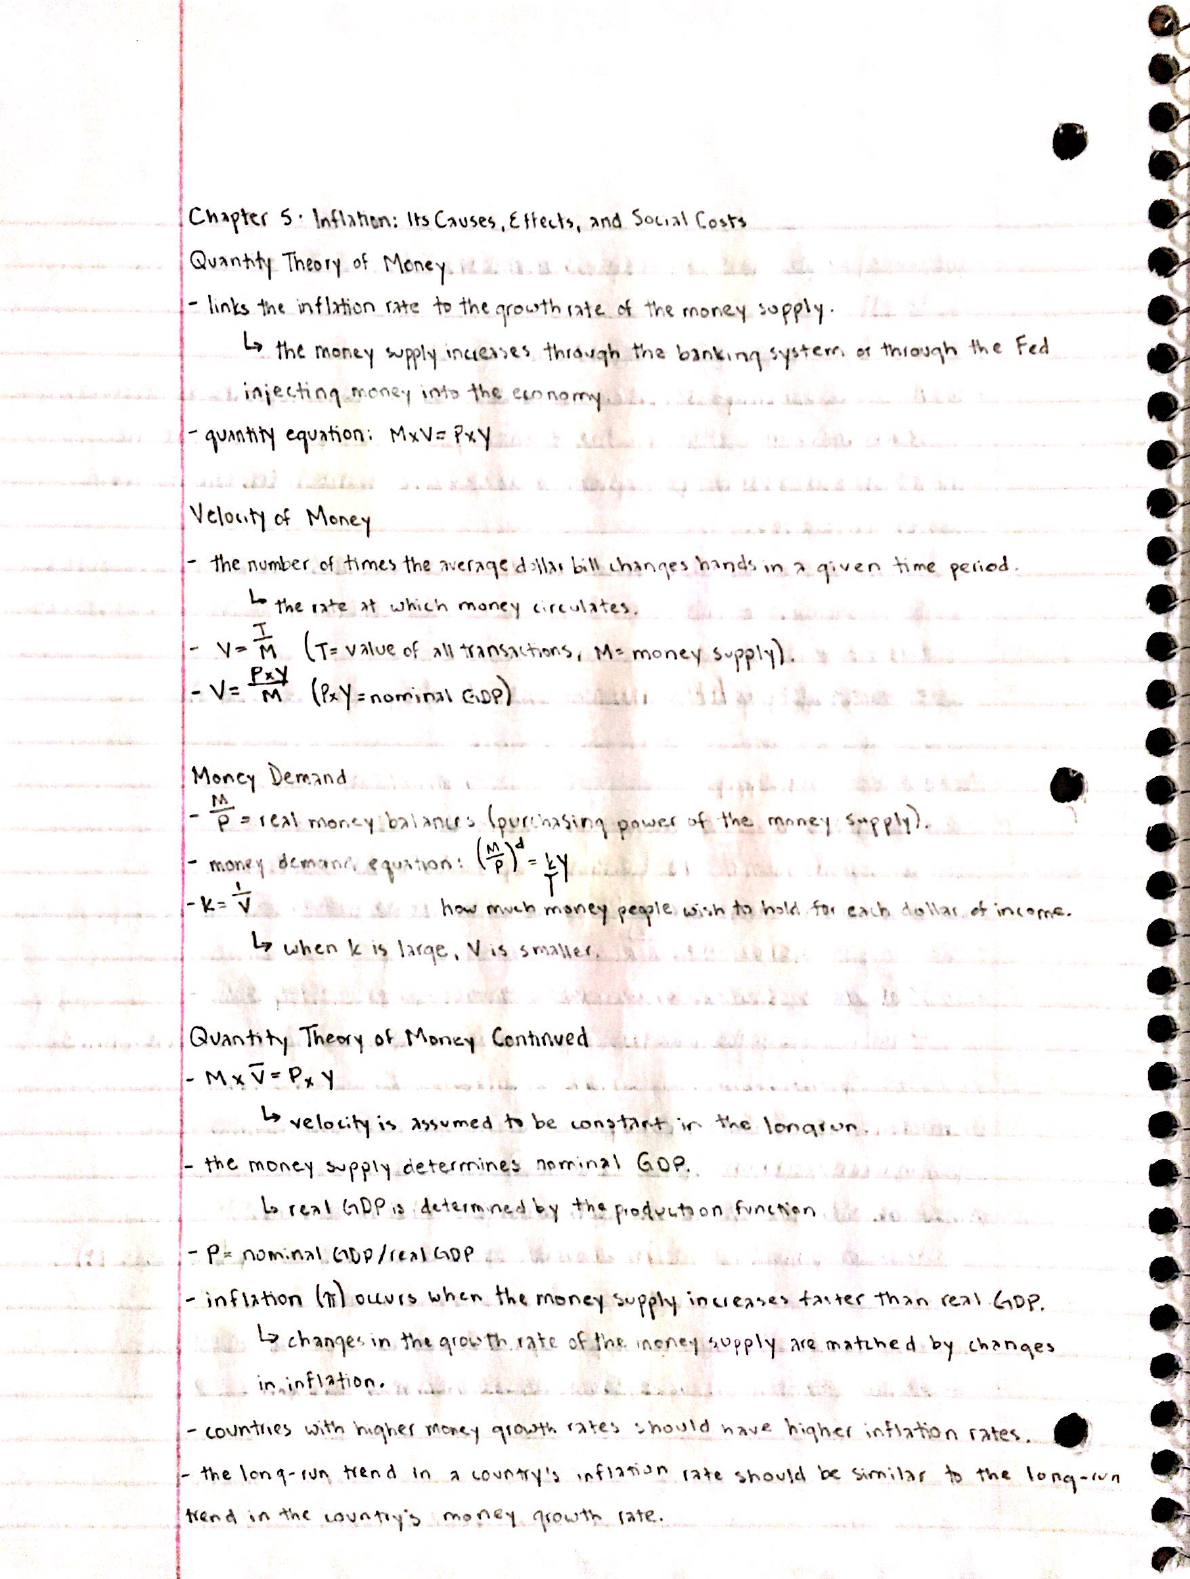 Chapter 5: Inflation: Its Causes, Effects, and Social Costs
Quantity Theory of Money
- links the inflation rate to the growth rate of the money supply.
↳ the money supply increases through the banking system or through the Fed
injecting money into the economy
- quantity equation: MxV = PxY
Velocity of Money
- the number of times the average dollar bill changes hands in a given time period.
↳ the rate at which money circulates.
- V = T/M (T = value of all transactions, M = money supply).
- V = PxY/M (PxY = nominal GDP)
Money Demand
- M/P = real money balances (purchasing power of the money supply).
- money demand equation: (M/P)^d = kY
- k = 1/V how much money people wish to hold for each dollar of income.
↳ when k is large, V is smaller.
Quantity Theory of Money Continued
- M x V̄ = P x Y
↳ velocity is assumed to be constant in the long run.
- the money supply determines nominal GDP.
↳ real GDP is determined by the production function
- P = nominal GDP/real GDP
- inflation (π) occurs when the money supply increases faster than real GDP.
↳ changes in the growth rate of the money supply are matched by changes
in inflation.
- countries with higher money growth rates should have higher inflation rates.
- the long-run trend in a country's inflation rate should be similar to the long-run
trend in the country's money growth rate.